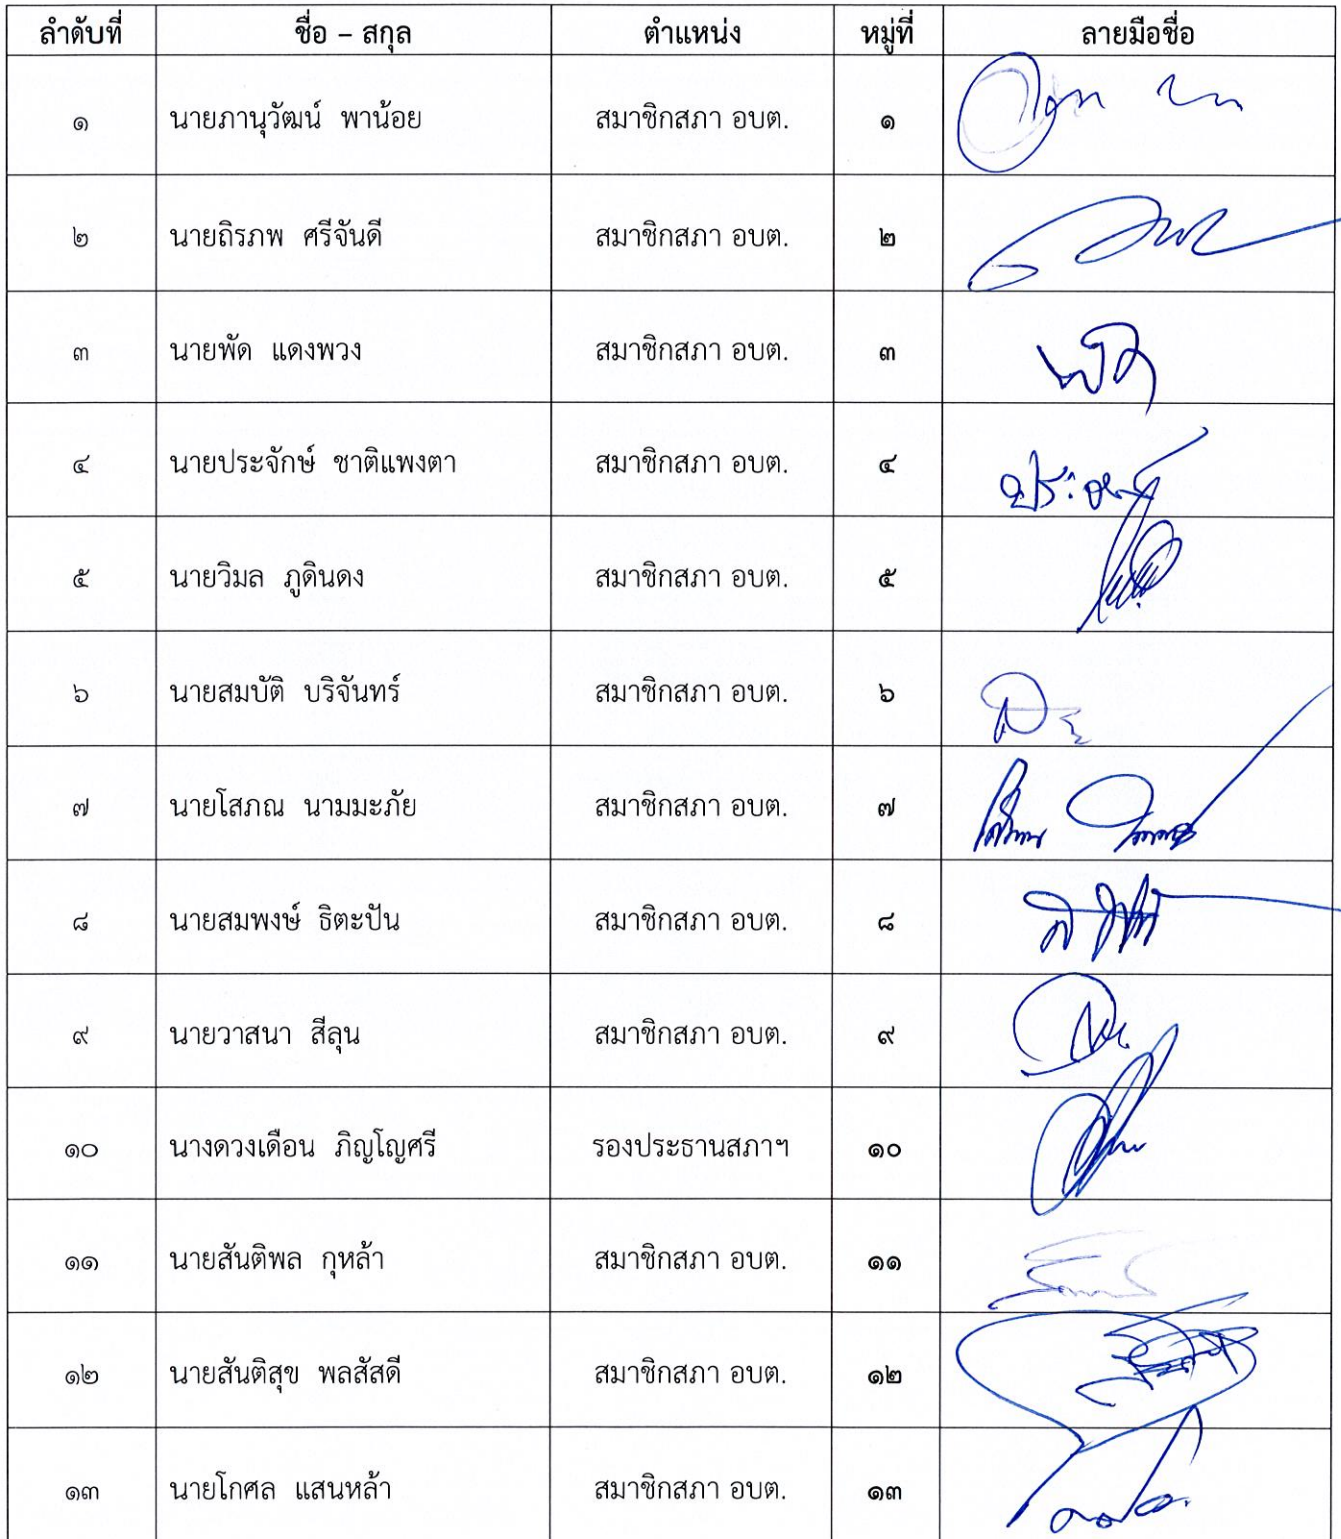 ลำดับที่ ชื่อ – สกุล ตำแหน่ง หมู่ที่ ลายมือชื่อ
๑ นายภานุวัฒน์ พาน้อย สมาชิกสภา อบต. ๑
๒ นายถิรภพ ศรีจันดี สมาชิกสภา อบต. ๒
๓ นายพัด แดงพวง สมาชิกสภา อบต. ๓ พัด
๔ นายประจักษ์ ชาติแพงตา สมาชิกสภา อบต. ๔ ประจักษ์
๕ นายวิมล ภูดินดง สมาชิกสภา อบต. ๕
๖ นายสมบัติ บริจันทร์ สมาชิกสภา อบต. ๖
๗ นายโสภณ นามมะภัย สมาชิกสภา อบต. ๗
๘ นายสมพงษ์ ธิตะปัน สมาชิกสภา อบต. ๘
๙ นายวาสนา สีลุน สมาชิกสภา อบต. ๙
๑๐ นางดวงเดือน ภิญโญศรี รองประธานสภาฯ ๑๐
๑๑ นายสันติพล กุหล้า สมาชิกสภา อบต. ๑๑
๑๒ นายสันติสุข พลสัสดี สมาชิกสภา อบต. ๑๒
๑๓ นายโกศล แสนหล้า สมาชิกสภา อบต. ๑๓